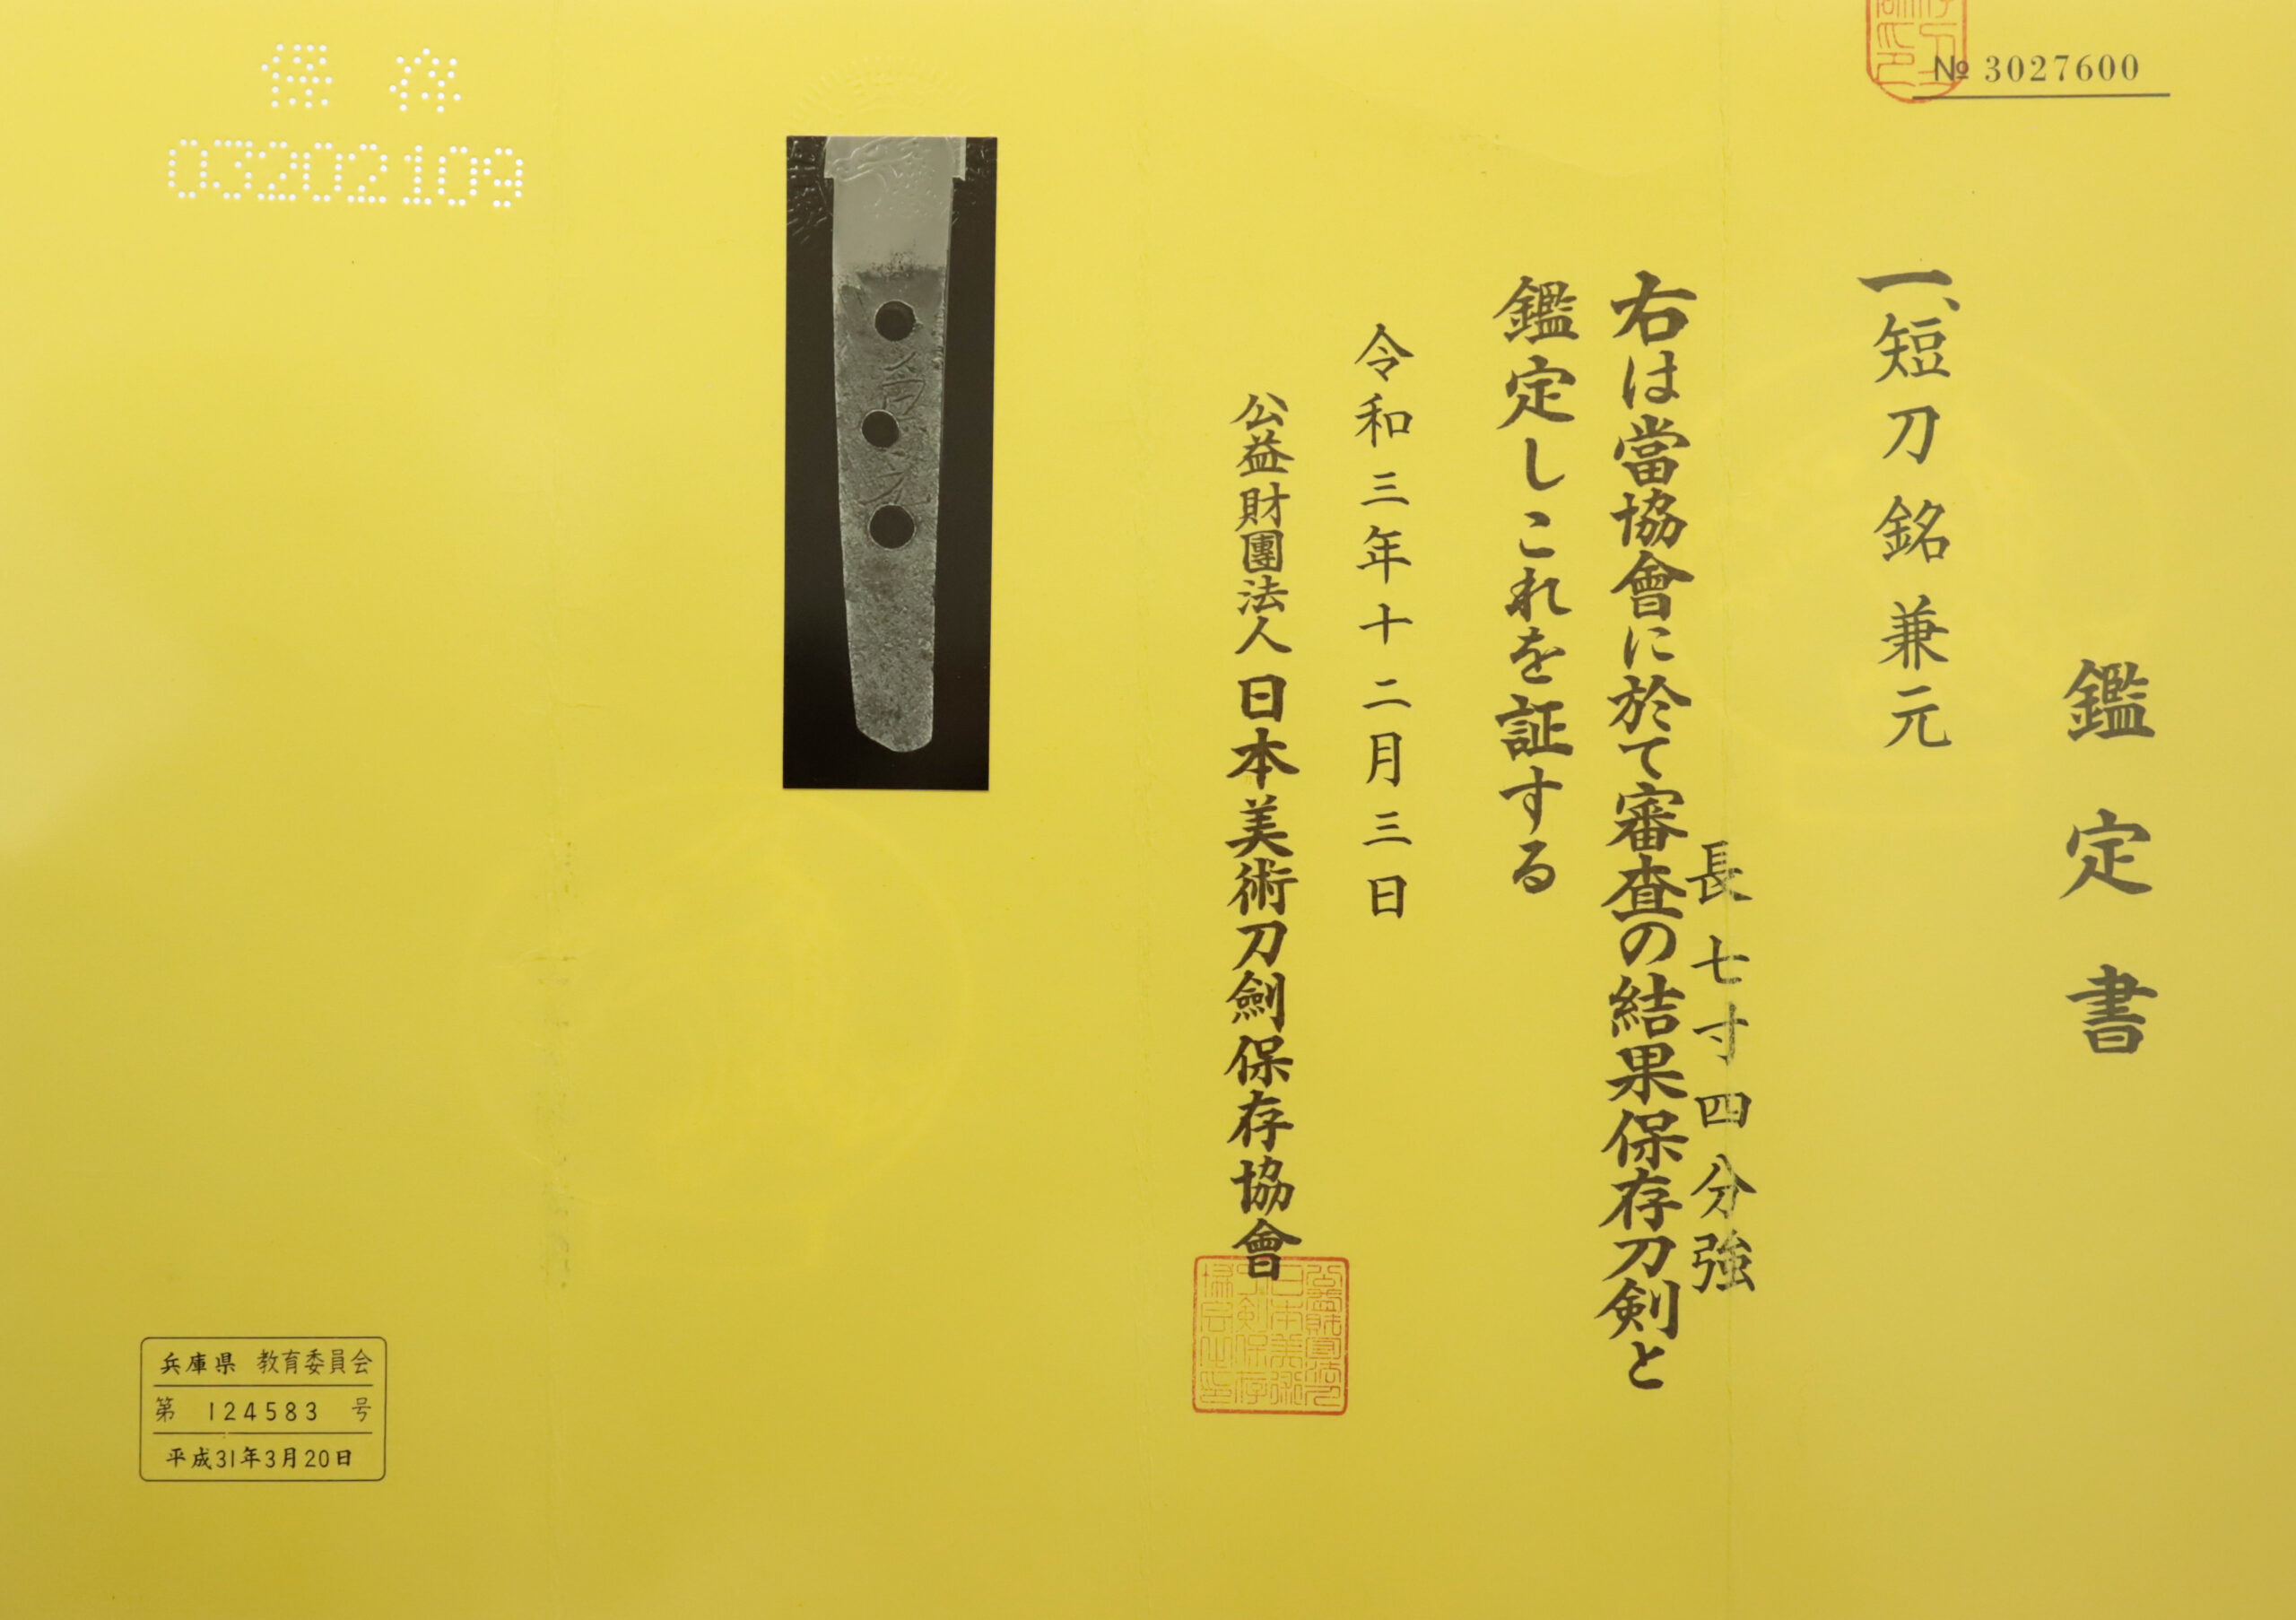 № 3027600
鑑定書
一、短刀 銘 兼元
長七寸四分強
右は當協會に於て審査の結果保存刀剣と
鑑定しこれを証する
令和三年十二月三日
公益財團法人 日本美術刀劍保存協會
兼元
保存
03202109
兵庫県 教育委員会
第 124583 号
平成31年3月20日